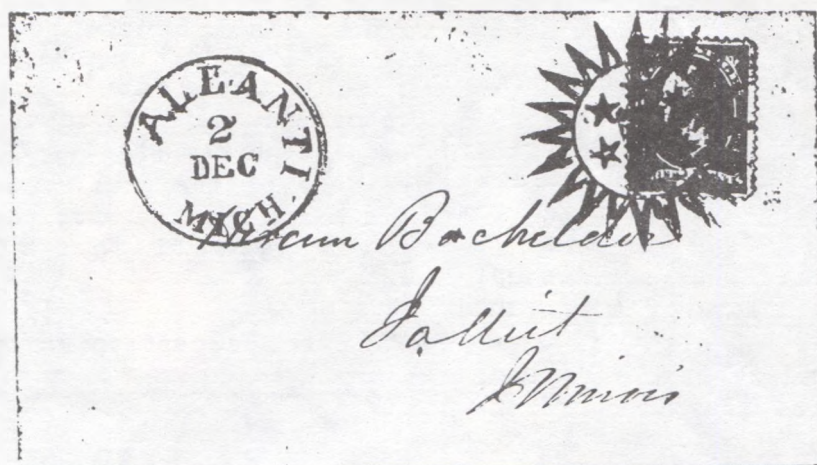 ALEANTI
2
DEC
MICH
Hiram Bachelder
Jolliet
Illinois